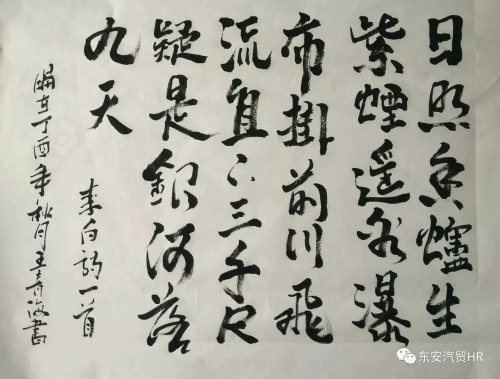 日照香爐生
紫煙遥看瀑
布掛前川飛
流直下三千尺
疑是銀河落
九天
李白詩一首
丁酉年秋月王書
东安汽贸HR